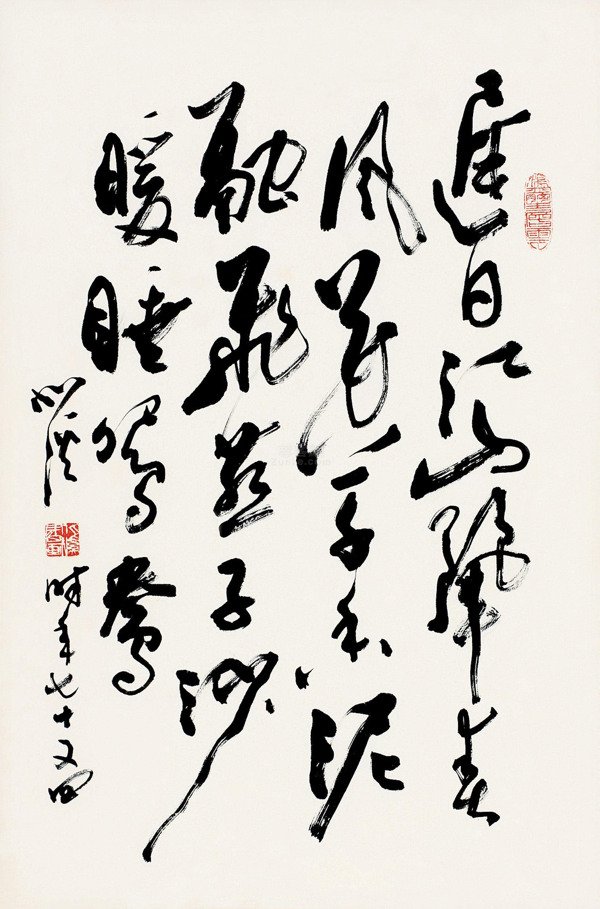 遲日江山麗春
風花草香泥
融飛燕子沙
暖睡鴛鴦
時年七十又四